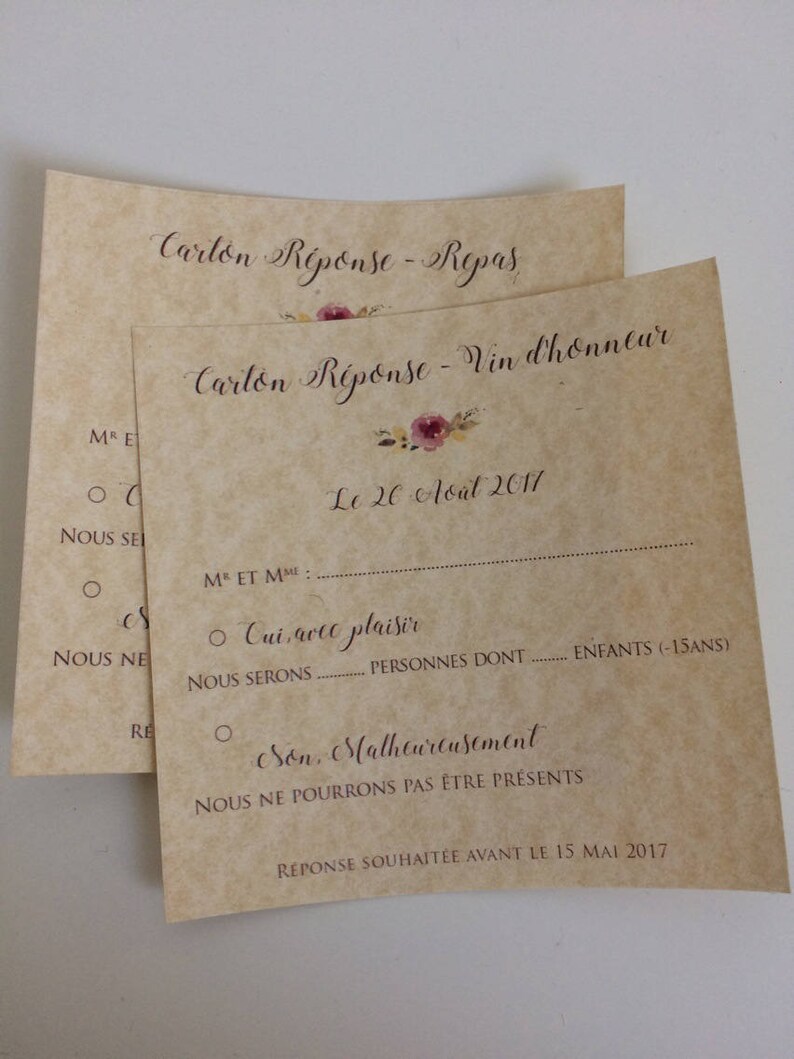 Carton Réponse - Repas
Mr ET
Nous ser
Nous ne
Ré
Carton Réponse - Vin d'honneur
Le 26 Août 2017
Mr et Mme : ....................................................................................
Oui, avec plaisir
Nous serons ............ personnes dont ......... enfants (-15ans)
Non, Malheureusement
Nous ne pourrons pas être présents
Réponse souhaitée avant le 15 Mai 2017